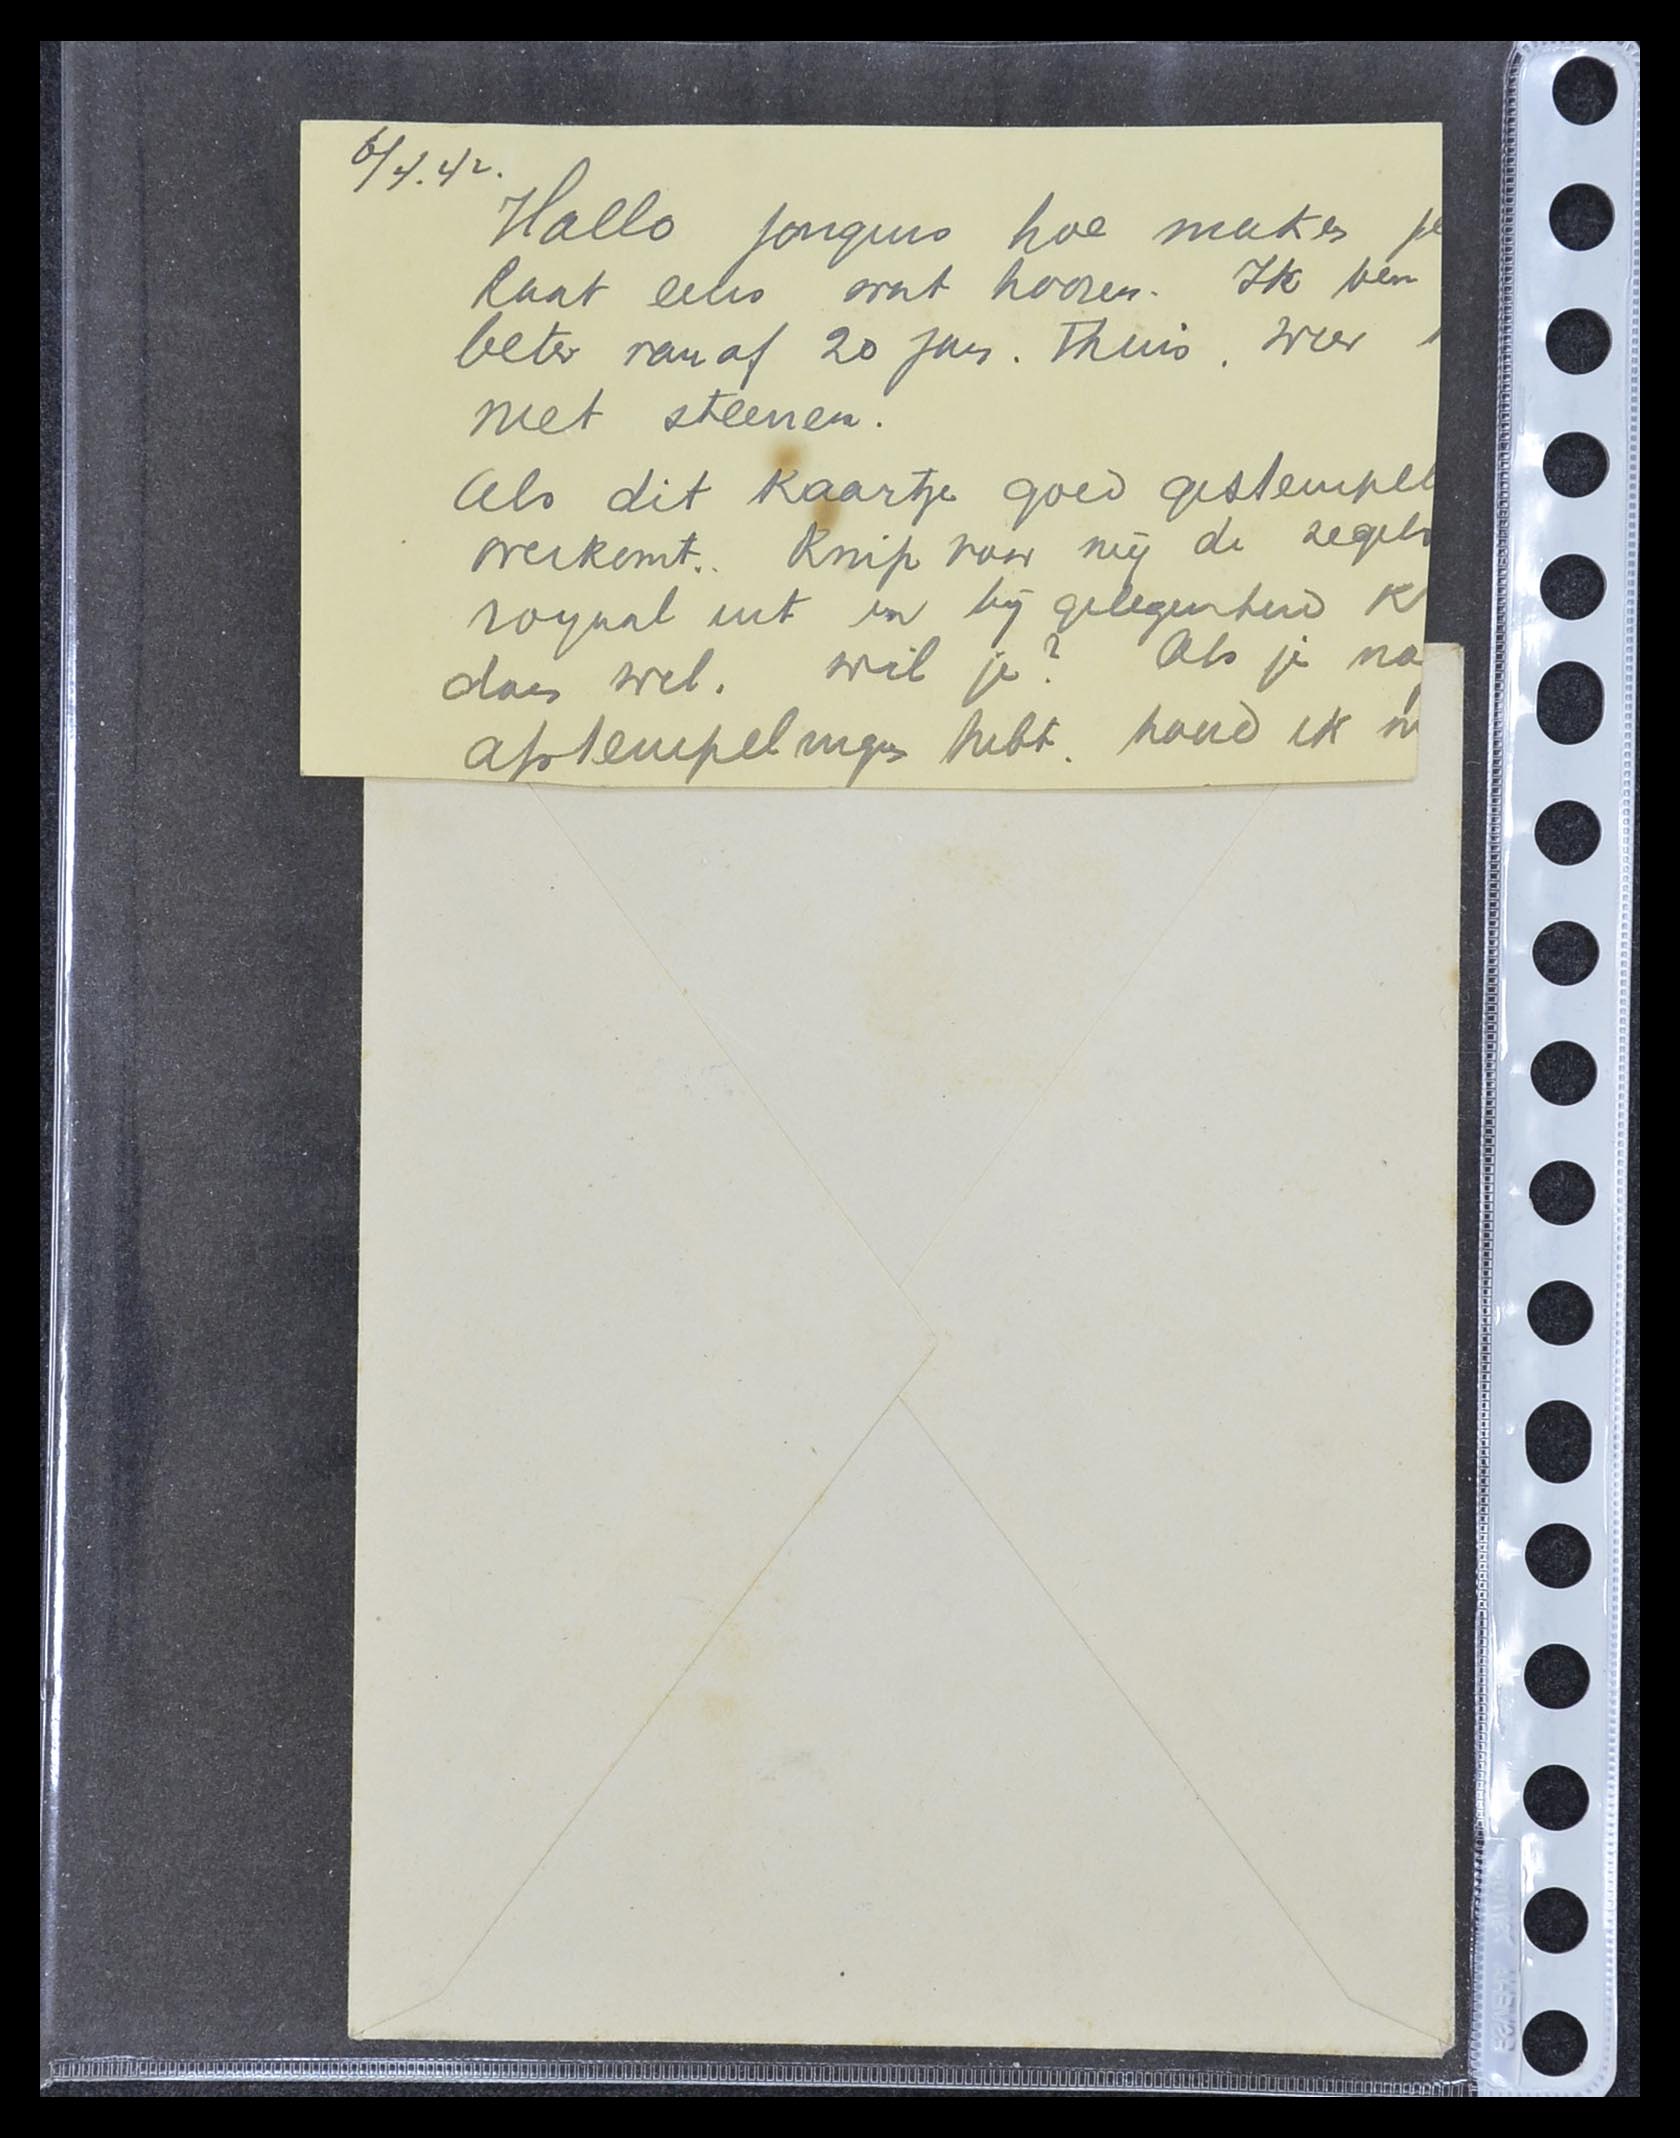 6/4.42.
Hallo jongens hoe maken je
laat eens wat hooren. Ik ben
beter vanaf 20 jan. thuis. weer
met steenen.
Als dit kaartje goed gestempel
overkomt.. Knip voor mij de zegels
royaal uit en bij gelegenheid K
dan wel. wil je? Als je no
afstempelingen hebt. houd ik m